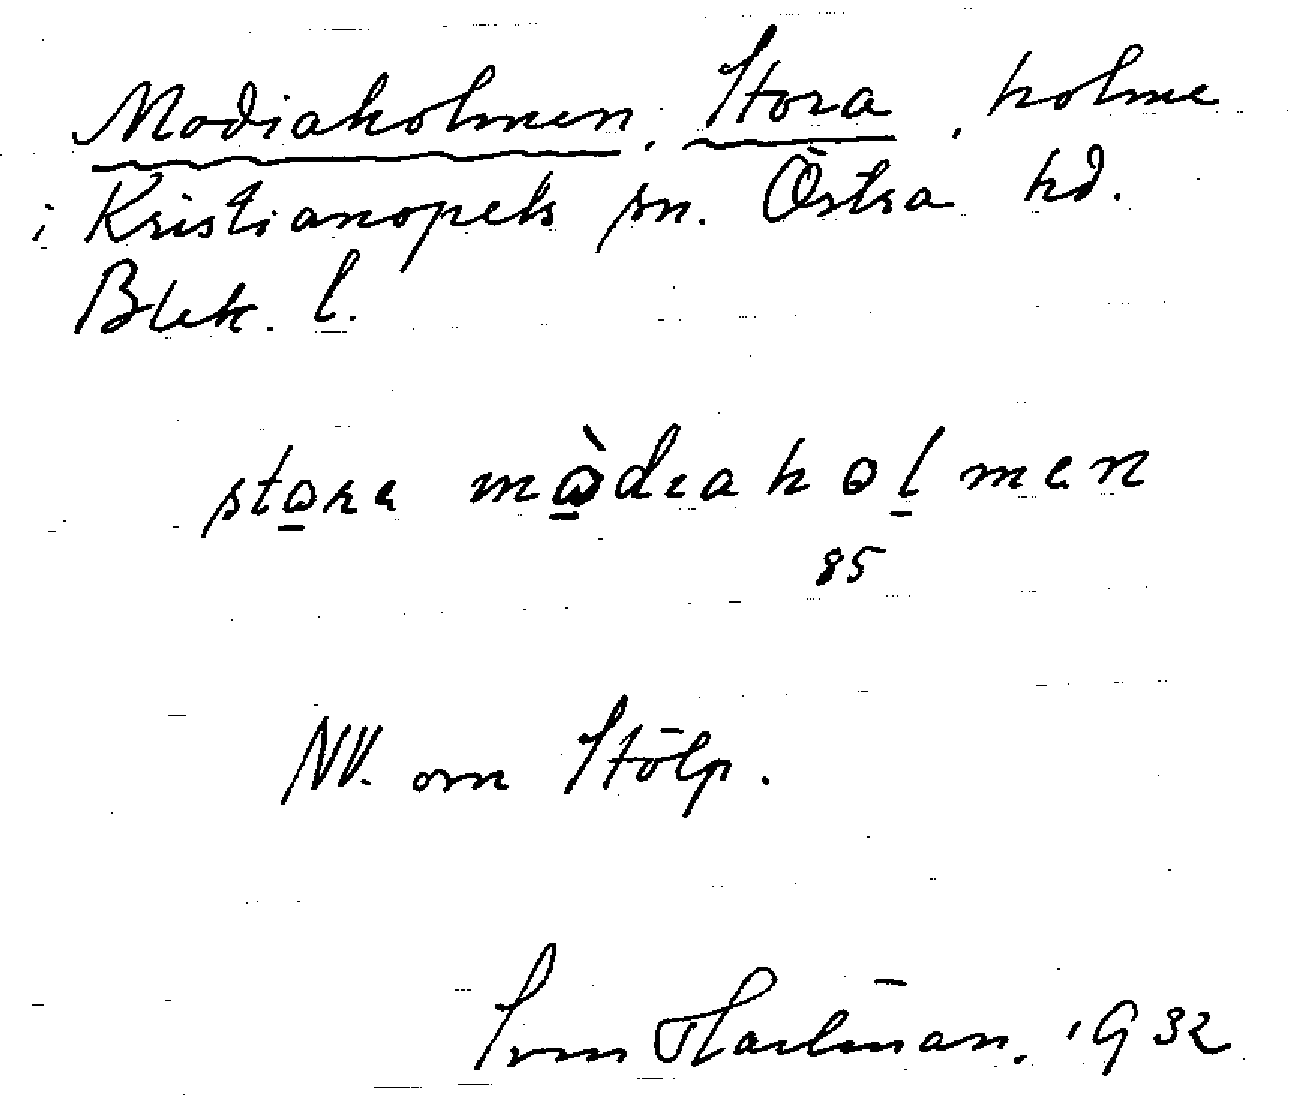 Modiaholmen. Stora, holme
i Kristianopels sn. Östra hd.
Blek. l.
stora mòdiaholmen
85
NV. om Stölp.
Sven Hartman. 1932